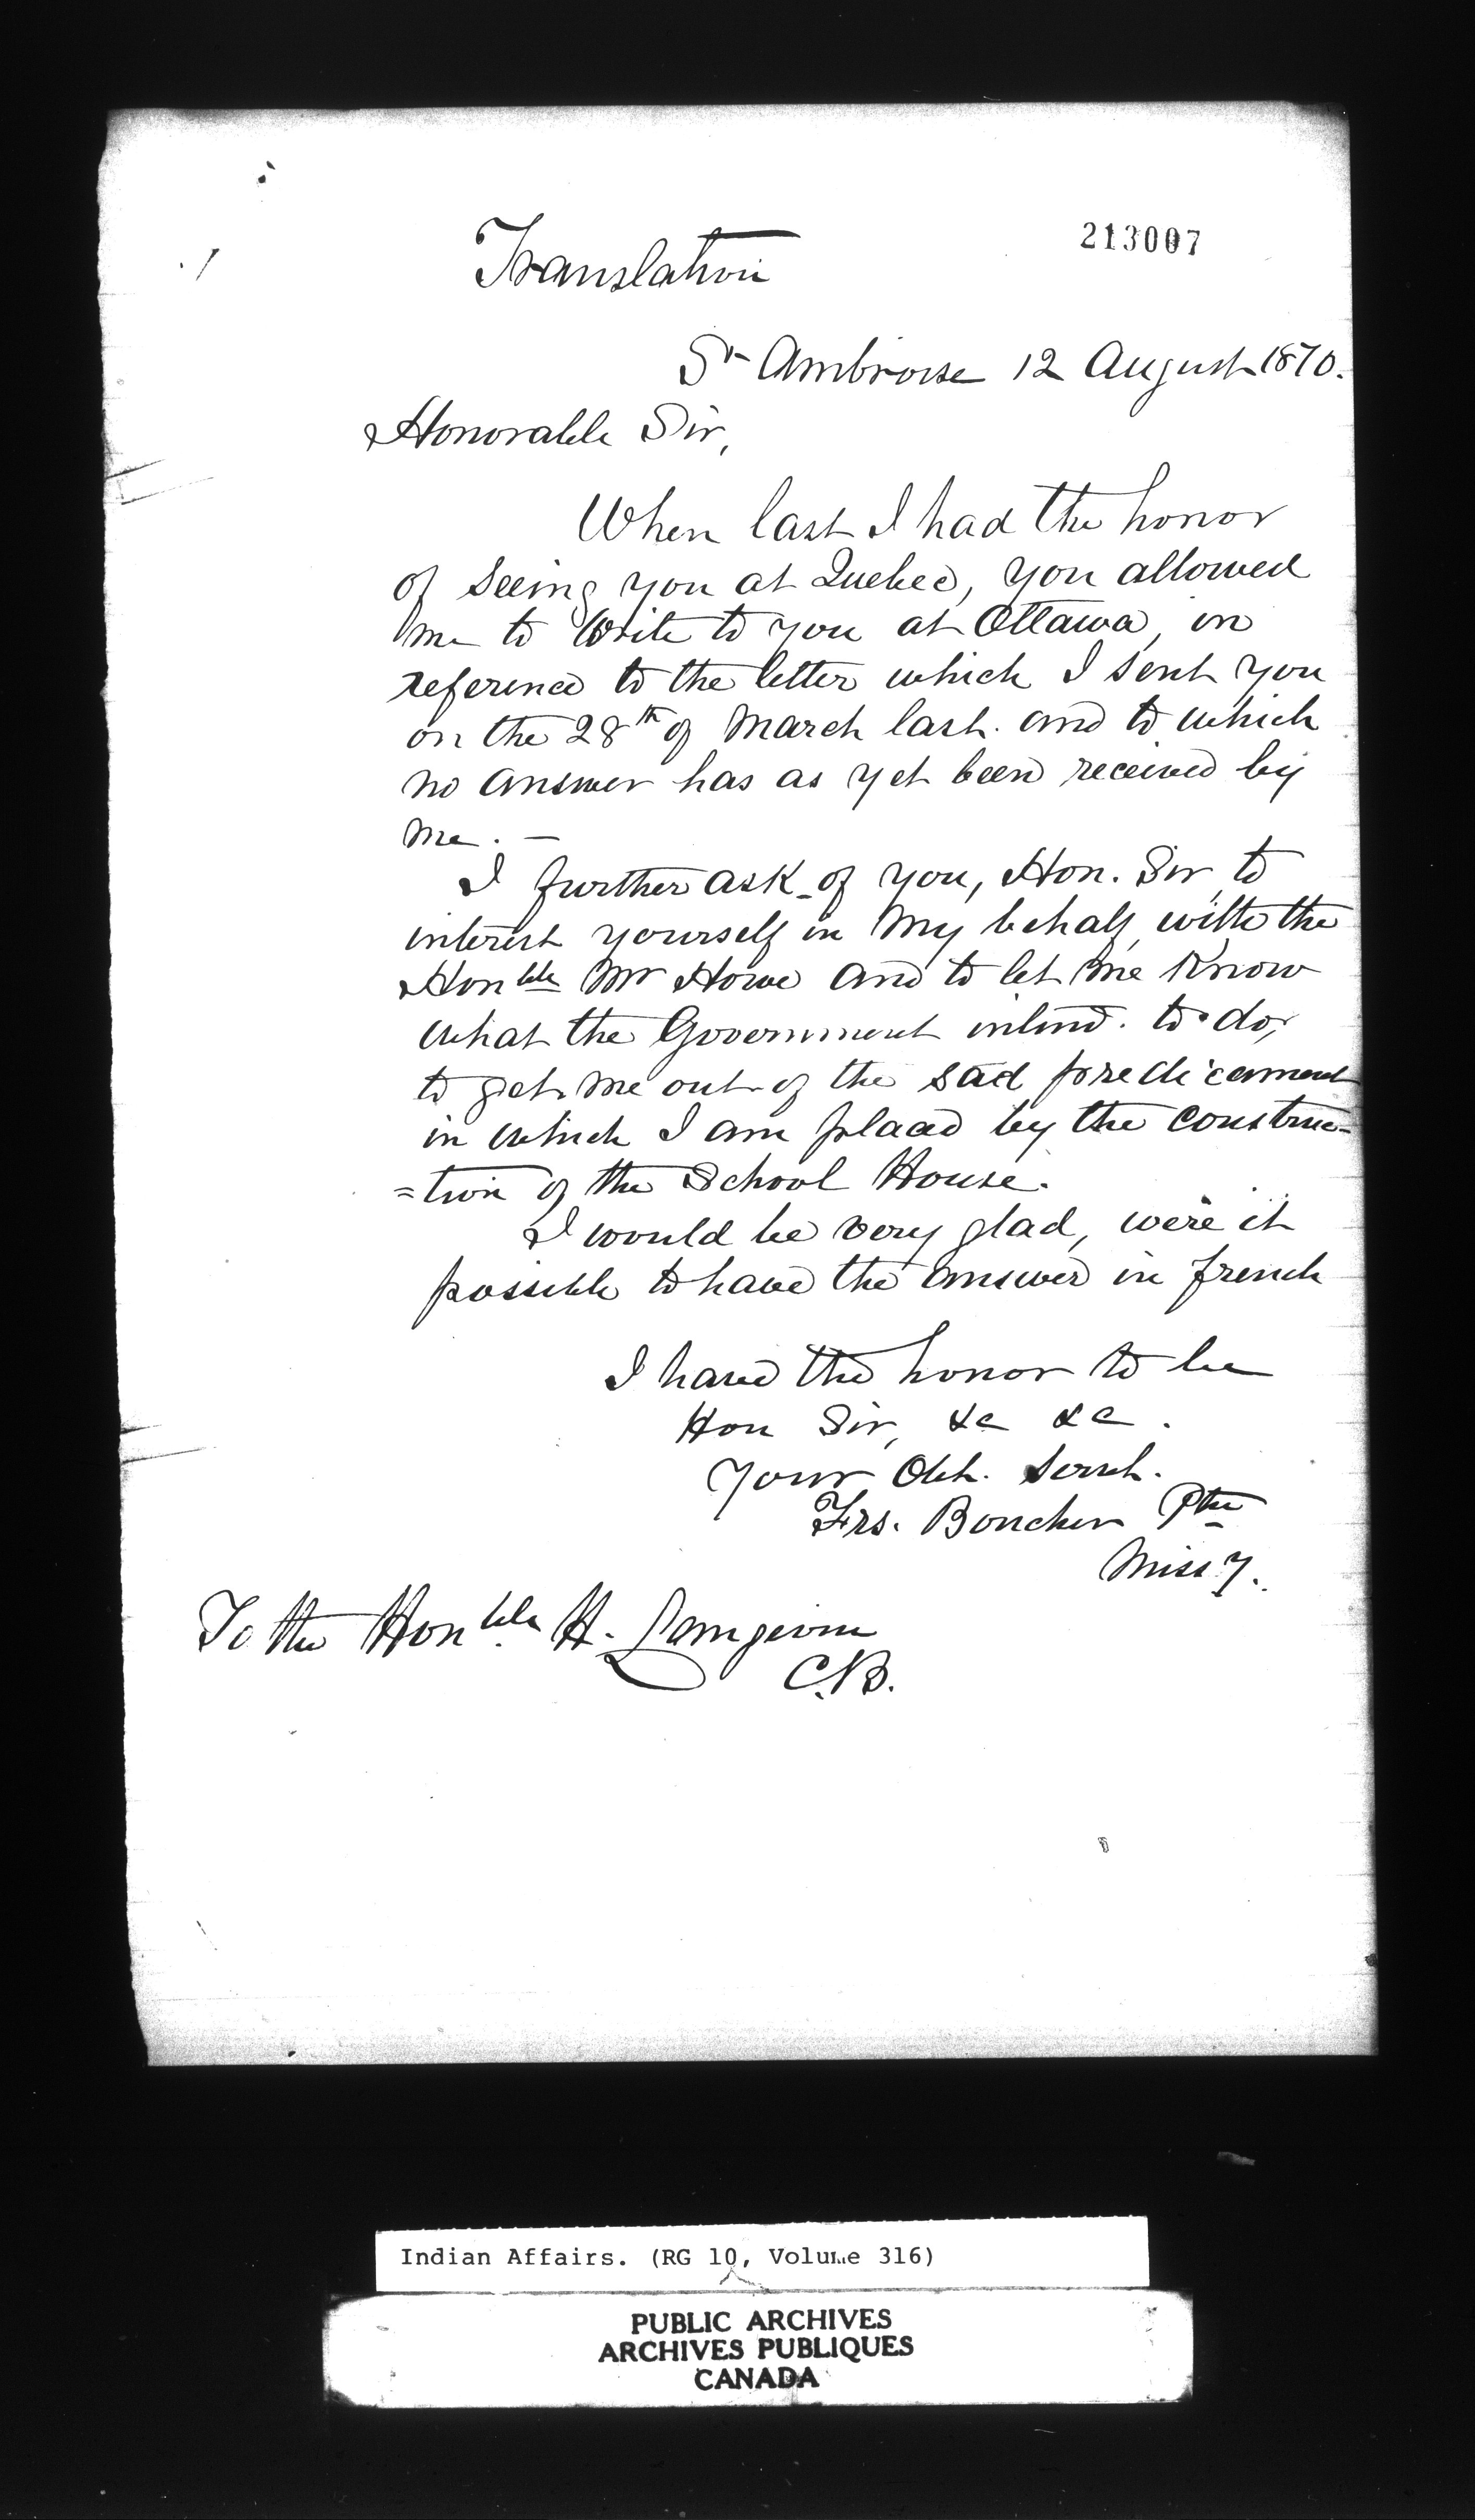 213007
Translation
St Ambroise 12 August 1870.
Honorable Sir,
When last I had the honor
of seeing you at Quebec, you allowed
me to write to you at Ottawa, in
reference to the letter which I sent you
on the 28th of March last. and to which
no answer has as yet been received by
me. —
I further ask of you, Hon. Sir, to
interest yourself in my behalf, with the
Honble Mr Howe and to let me know
what the Government intend. to do,
to get me out of the sad predicament
in which I am placed by the construc-
=tion of the School House.
I would be very glad, were it
possible to have the answer in french
I have the honor to be
Hon Sir, &c &c.
Your Obt. Servt.
Frs. Boucher Ptre
Missy.
To the Honble H. Langevin
C.B.
Indian Affairs. (RG 10, Volume 316)
PUBLIC ARCHIVES
ARCHIVES PUBLIQUES
CANADA